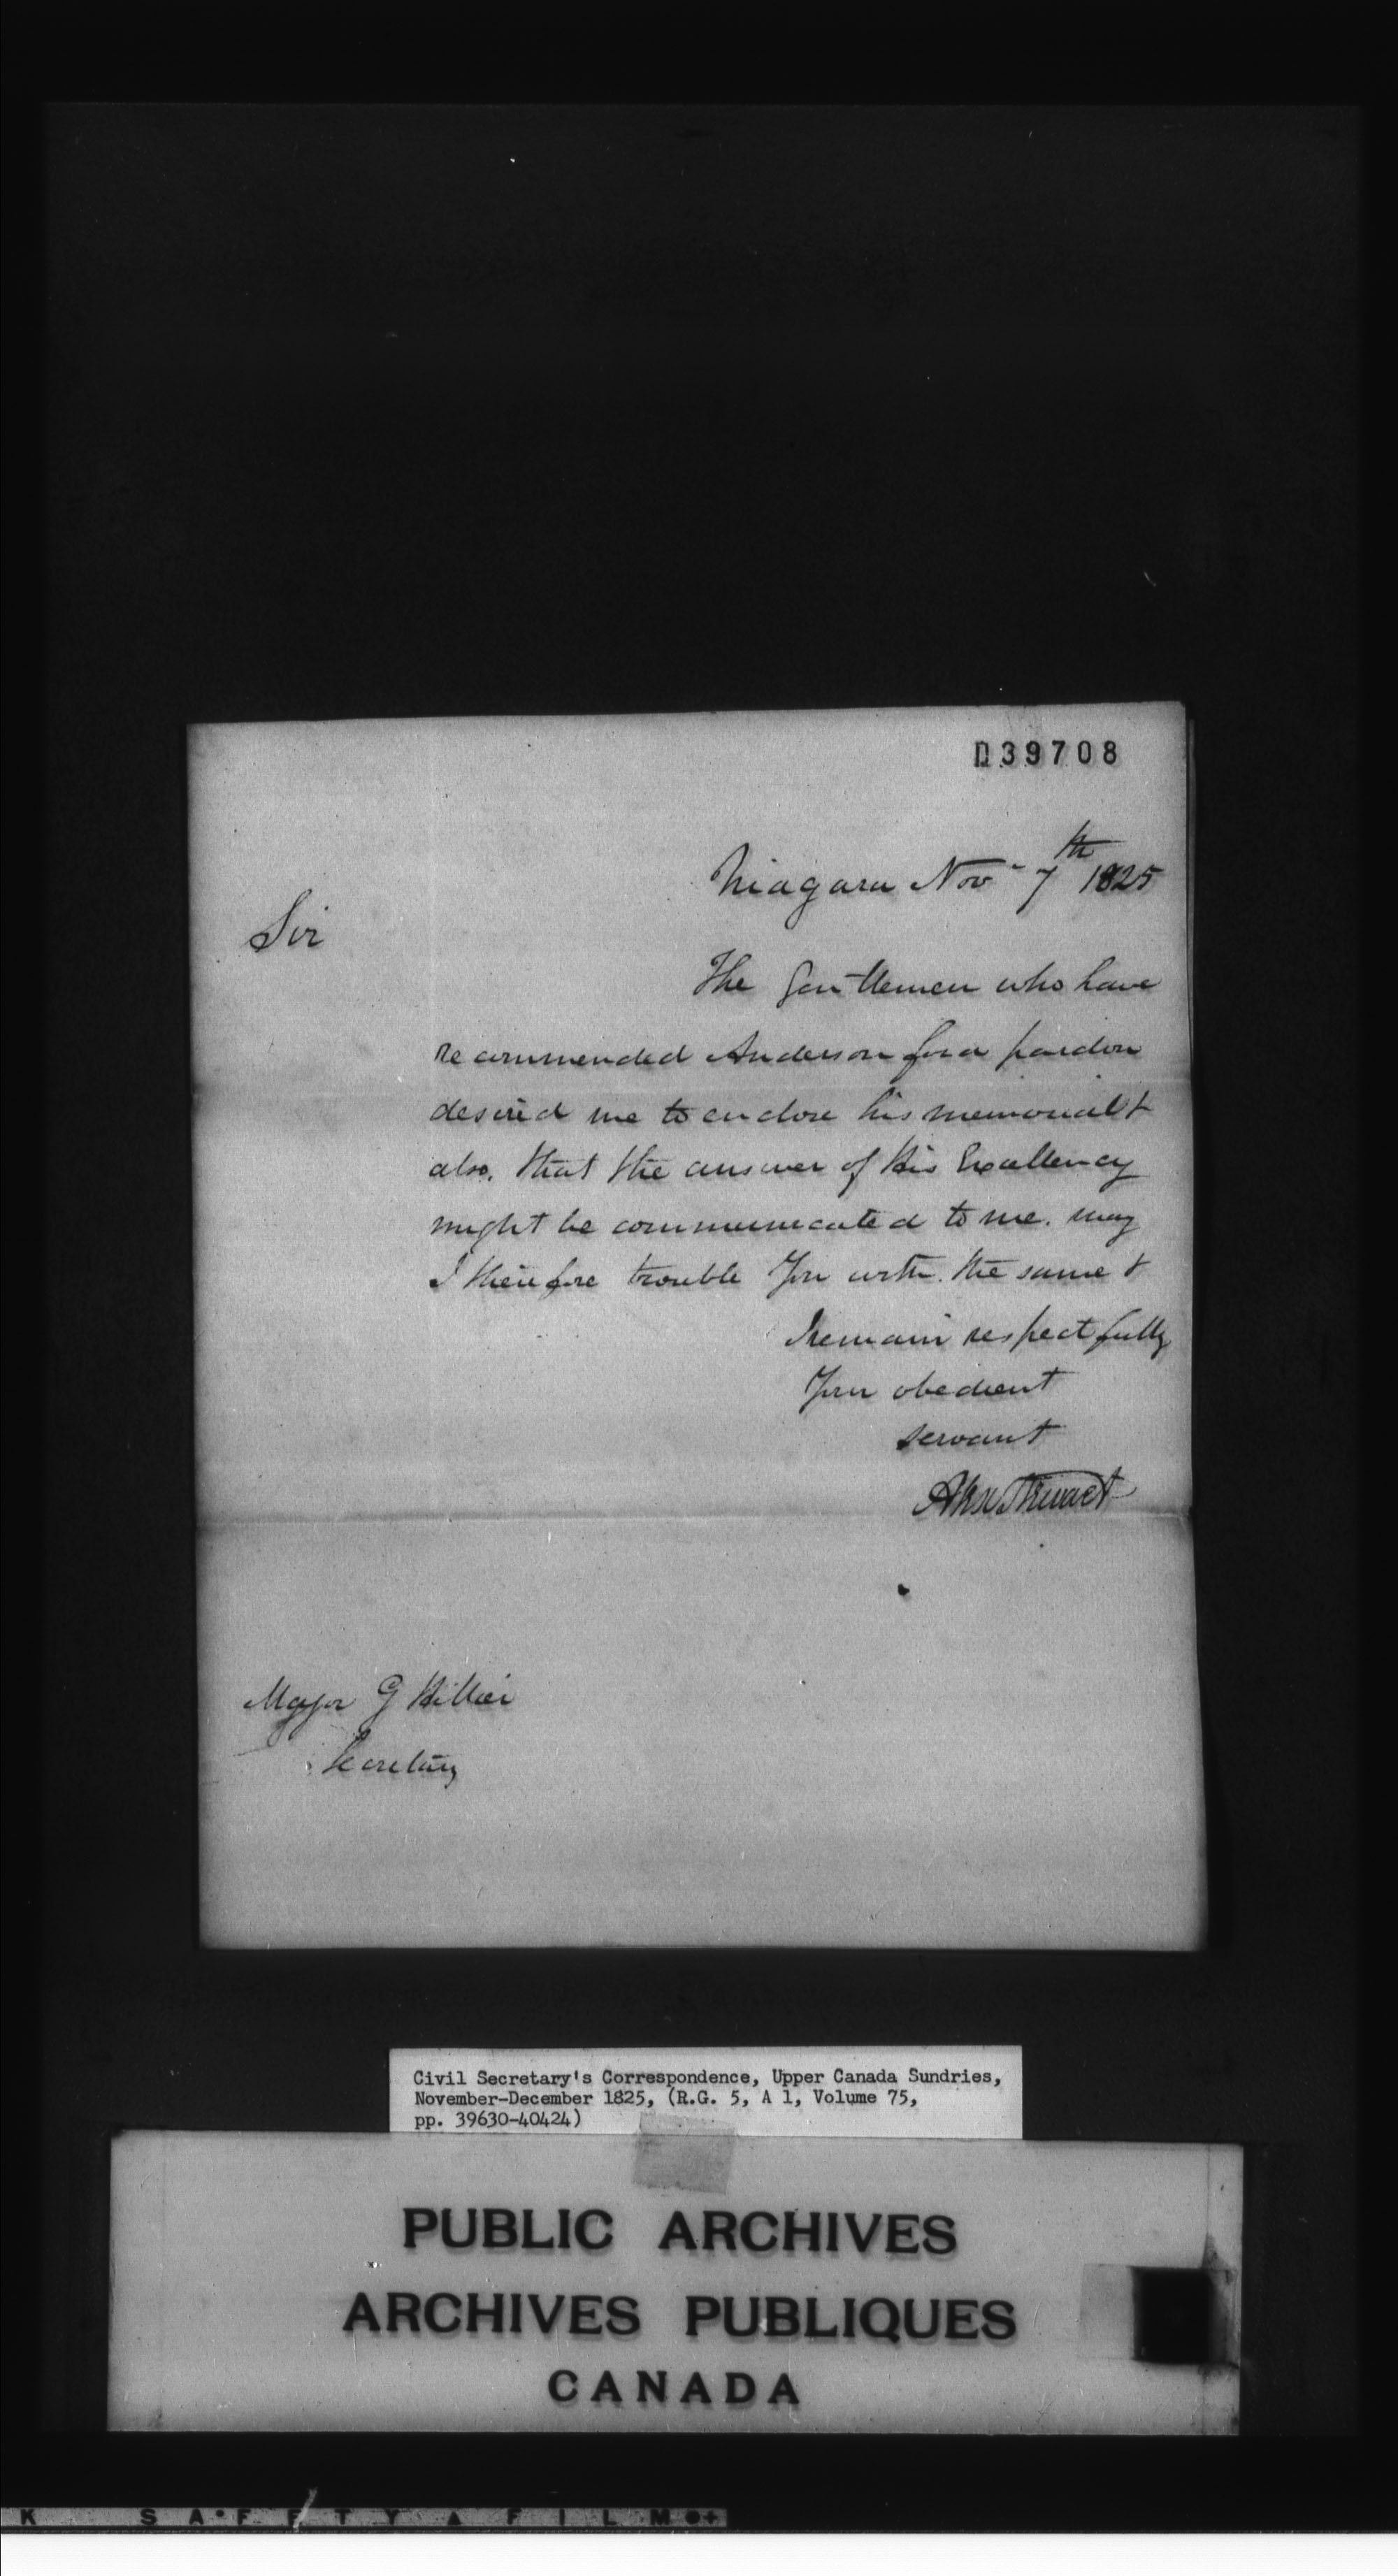 D39708
Niagara Nov 7th 1825
Sir
The Gentlemen who have
recommended Anderson for a pardon
desired me to enclose his memorial &
also, that the answer of His Excellency
might be communicated to me. may
I therefore trouble You with the same &
I remain respectfully
Your obedient
servant
Alexr Stewart
Major G Hillier
Secretary
Civil Secretary's Correspondence, Upper Canada Sundries,
November-December 1825, (R.G. 5, A 1, Volume 75,
pp. 39630-40424)
PUBLIC ARCHIVES
ARCHIVES PUBLIQUES
CANADA
K SAFETY FILM